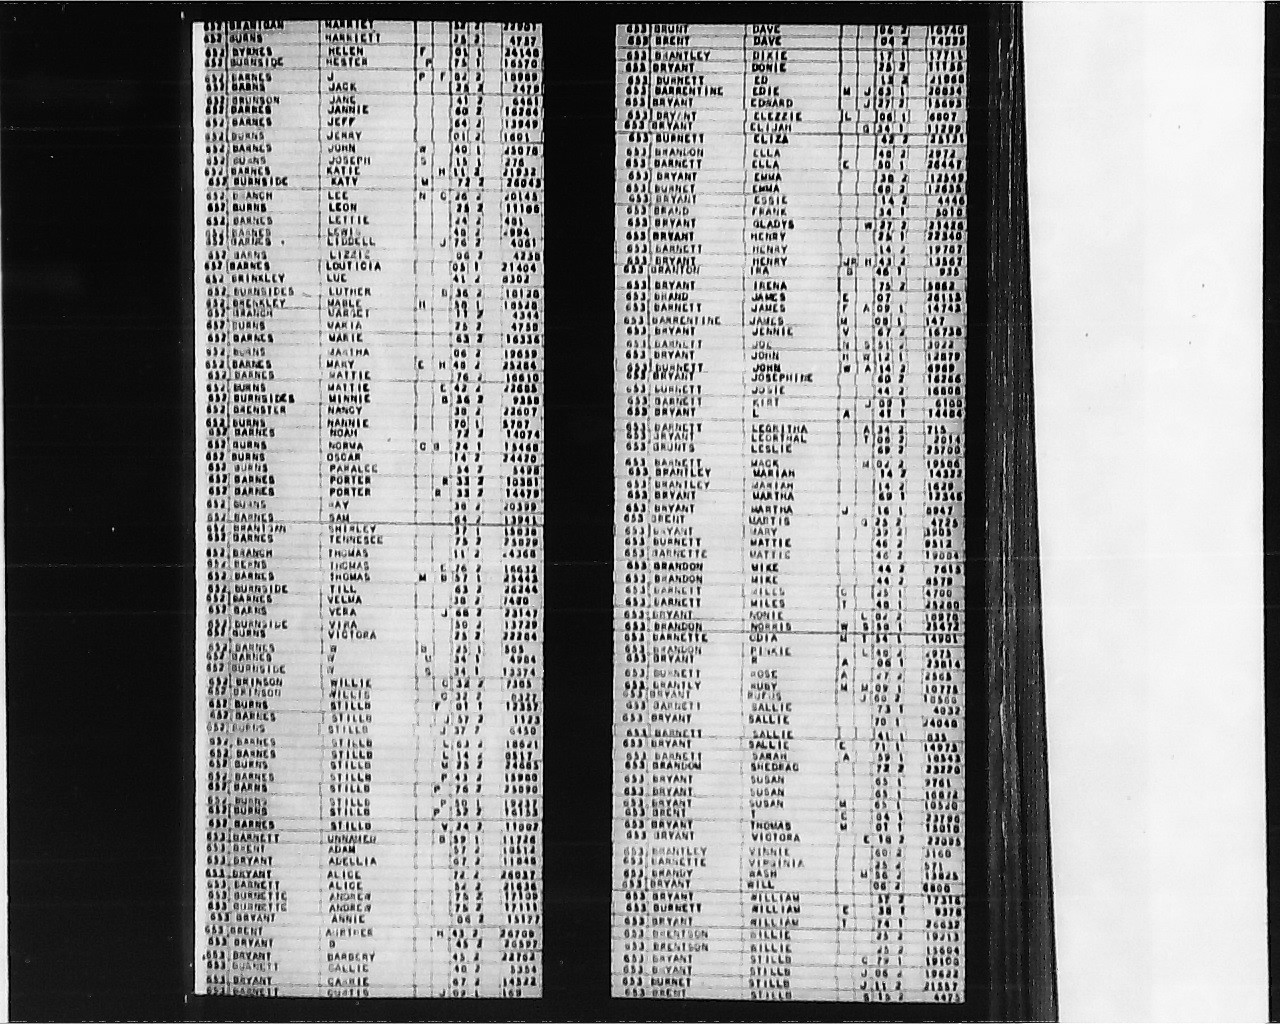 652 BRANIGAN HARRIET
652 BURNS HARRIETT 25 2 4757
652 BYRNES HELEN F 01 1 26140
652 BURNSIDE HESTER P 75 1 16570
652 BARNES J P F 02 2 18989
652 BARNS JACK 25 2 2479
652 BRUNSON JANE 41 2 6461
652 BARNES JANNIE 60 2 16266
652 BARNES JEFF 64 2 13949
652 BURNS JERRY 01 2 1601
652 BARNES JOHN W 40 1 25078
652 BURNS JOSEPH S 15 1 276
652 BARNES KATIE H 11 2 21932
652 BURNSIDE KATY M 72 2 26043
652 BRANCH LEE N C 26 2 20145
652 BURNS LEON 25 2 11166
652 BARNES LETTIE 24 2 401
652 BARNES LEWIS 40 2 2994
652 BARNES LIDDELL J 76 2 4061
652 BARNS LIZZIE 06 2 4230
652 BARNES LOUTICIA 05 1 21404
652 BRINKLEY LUE 41 2 8302
652 BURNSIDES LUTHER B 36 2 18120
652 BRENKLEY MABLE H 50 1 10520
652 BRANCH MARGET 11 2 4345
652 BURNS MARIA 75 2 4750
652 BARNES MARIE 63 2 16336
652 BURNS MARTHA 06 2 19659
652 BARNES MARY E H 40 2 25284
652 BARNES MATTIE 76 2 16610
652 BURNS MATTIE E 42 2 22685
652 BURNSIDES MINNIE B 36 2 9350
652 BREWSTER NANCY 38 2 22607
652 BURNS NANNIE 70 1 5787
652 BARNES NOAH 72 2 14074
652 BURNS NORMA C B 74 1 15460
652 BURNS OSCAR 14 2 24420
652 BURNS PARALEE 54 2 5698
652 BARNES PORTER R 33 2 10381
652 BARNES PORTER R 33 2 14479
652 BURNS RAY 38 2 20399
652 BARNES SAM 64 2 13941
652 BRANIGAN SHIRLEY 37 1 15038
652 BARNES TENNESEE 75 2 25029
652 BRANCH THOMAS 11 2 24360
652 BURNS THOMAS E 76 2 16632
652 BARNES THOMAS M B 57 1 25443
652 BURNSIDE TILL 63 2 26244
652 BARNES VELMA 38 2 2620
652 BARNS VERA J 66 2 23147
652 BURNSIDE VIRA 50 2 13729
652 BURNS VICTORA 25 2 22204
652 BARNES W B 25 1 565
652 BARNES W U 34 1 4984
652 BURNSIDE W S 34 1 13374
652 BRINSON WILLIE C 32 2 7305
652 BRINSON WILLIS C 32 2 8327
652 BURNS STILLB F 01 1 12357
652 BARNES STILLB J 57 2 1123
652 BURNS STILLB J 37 2 6450
652 BARNES STILLB L 63 2 18621
652 BARNES STILLB L 14 2 8517
652 BURNS STILLB M 33 2 24605
652 BARNES STILLB P 43 2 15980
652 BARNS STILLB P 76 2 25090
652 BURNS STILLB P 50 1 19237
652 BURNS STILLB P 52 2 16153
652 BARNES STILLB V 24 2 11002
653 BARNETT UNNAMED B 59 1 11726
653 BRENT ADAM 57 2 18512
653 BRYANT ADELLIA 67 2 11846
653 BRYANT ALICE 72 2 26037
653 BARNETT ALICE 52 2 21636
653 BURNETTE ANDREW 75 2 17105
653 BURNETTE ANDREW 75 2 17115
653 BRYANT ANNIE 06 2 15177
653 BRENT AURTHER H 43 2 26700
653 BRYANT B 45 2 20597
653 BRYANT BARBERY 45 2 22762
653 BURNETT CALLIE 40 2 5354
653 BRYANT CARRIE 67 2 14522
653 BARNETT CURTIS J 09 1 169
653 BRUNT DAVE 06 2 16740
653 BRENT DAVE 04 2 14536
653 BRANTLEY DIXIE 17 1 17711
653 BRYANT DONIE 35 2 11155
653 BURNETT ED 13 2 21868
653 BARRENTINE EDIE M J 03 1 20834
653 BRYANT EDWARD J 27 2 15693
653 BRYANT ELEZZIE L 06 1 6807
653 BRYANT ELIJAH G 34 1 11299
653 BURNETT ELIZA 43 2 3511
653 BRANDON ELLA 40 2 2972
653 BARNETT ELLA E 50 1 26447
653 BRYANT EMMA 38 2 12549
653 BURNET EMMA 60 2 12635
653 BRYANT ESSIE 14 2 4446
653 BRAND FRANK 34 1 5010
653 BRYAN GLADYS W 27 2 21426
653 BRYANT HENRY 25 1 22340
653 BARNETT HENRY 14 2 19767
653 BRYANT HENRY JR H 43 2 13567
653 BRANTON IRA B 46 1 935
653 BRYANT IRENA 75 2 3862
653 BRAND JAMES E 07 26115
653 BARNETT JAMES F A 09 1 14743
653 BARRENTINE JAMES M 09 1 147
653 BRYANT JENNIE V 67 2 16738
653 BARNETT JOE N S 51 1 3022
653 BRYANT JOHN H W 12 1 12879
653 BURNETT JOHN W A 14 2 8969
653 BRYANT JOSEPHINE 60 2 16266
653 BURNETT JOSIE 14 2 16606
653 BARNETT KIRT J 09 1 6100
653 BRYANT L A 41 1 14404
653 BARNETT LEORITHA A 34 2 715
653 BRYANT LEORTHAL T 06 2 2014
653 BRUNTS LESLIE 69 2 25700
653 BARNETT MACK M 02 2 19506
653 BRANTLEY MARIAH 14 2 14322
653 BRANTLEY MARIAH 14 2 1629
653 BRYANT MARTHA 69 1 17346
653 BRYANT MARTHA J 16 1 8947
653 BRENT MARTIS G 25 2 4725
653 BRYANT MARY 37 2 3905
653 BURNETT MATTIE 66 2 9512
653 BARNETTE MATTIE 46 2 19004
653 BRANDON MIKE 44 2 7615
653 BRANDON MIKE 44 2 8578
653 BARNETT MILES C 25 1 4700
653 BARNETT MILES T 40 1 25280
653 BRYANT NONIE L 04 2 10970
653 BRANDON NORRIS W S 50 1 25472
653 BARNETTE ODIA M T 54 1 14901
653 BRANDON PINKIE L 40 2 2973
653 BRYANT R A 06 1 23614
653 BURNETT ROSE A 27 2 2565
653 BRANTLY RUBY M M 09 1 10775
653 BRYANT RUFUS J 60 2 10566
653 BARNETT SALLIE 73 1 4032
653 BRYANT SALLIE 70 1 24040
653 BARNETT SALLIE 41 1 635
653 BRYANT SALLIE E 71 1 14973
653 BARNETT SARAH A 59 1 10543
653 BRANDON SHEDRAC 72 2 23270
653 BRYANT SUSAN 65 1 9761
653 BRYANT SUSAN 65 1 10072
653 BRYANT SUSAN M 65 1 10520
653 BRENT T E 04 1 23790
653 BRYANT THOMAS M 01 1 15010
653 BRYANT VICTORA E 10 2 22095
653 BRANTLEY VINNIE 60 2 3160
653 BARNETTE VIRGINIA 25 2 571
653 BRANDY WASH M 56 2 13025
653 BRYANT WILL 06 2 8800
653 BRYANT WILLIAM 57 2 17316
653 BURNETT WILLIAM E 38 1 9378
653 BRYANT WILLIAM T 74 1 26032
653 BRENTSON WILLIE 25 2 19213
653 BRENTSON WILLIE 25 2 15604
653 BRYANT STILLB C 75 2 19100
653 BRYANT STILLB J 06 2 19623
653 BURNET STILLB J 11 2 21557
653 BRENT STILLB S 15 2 4475